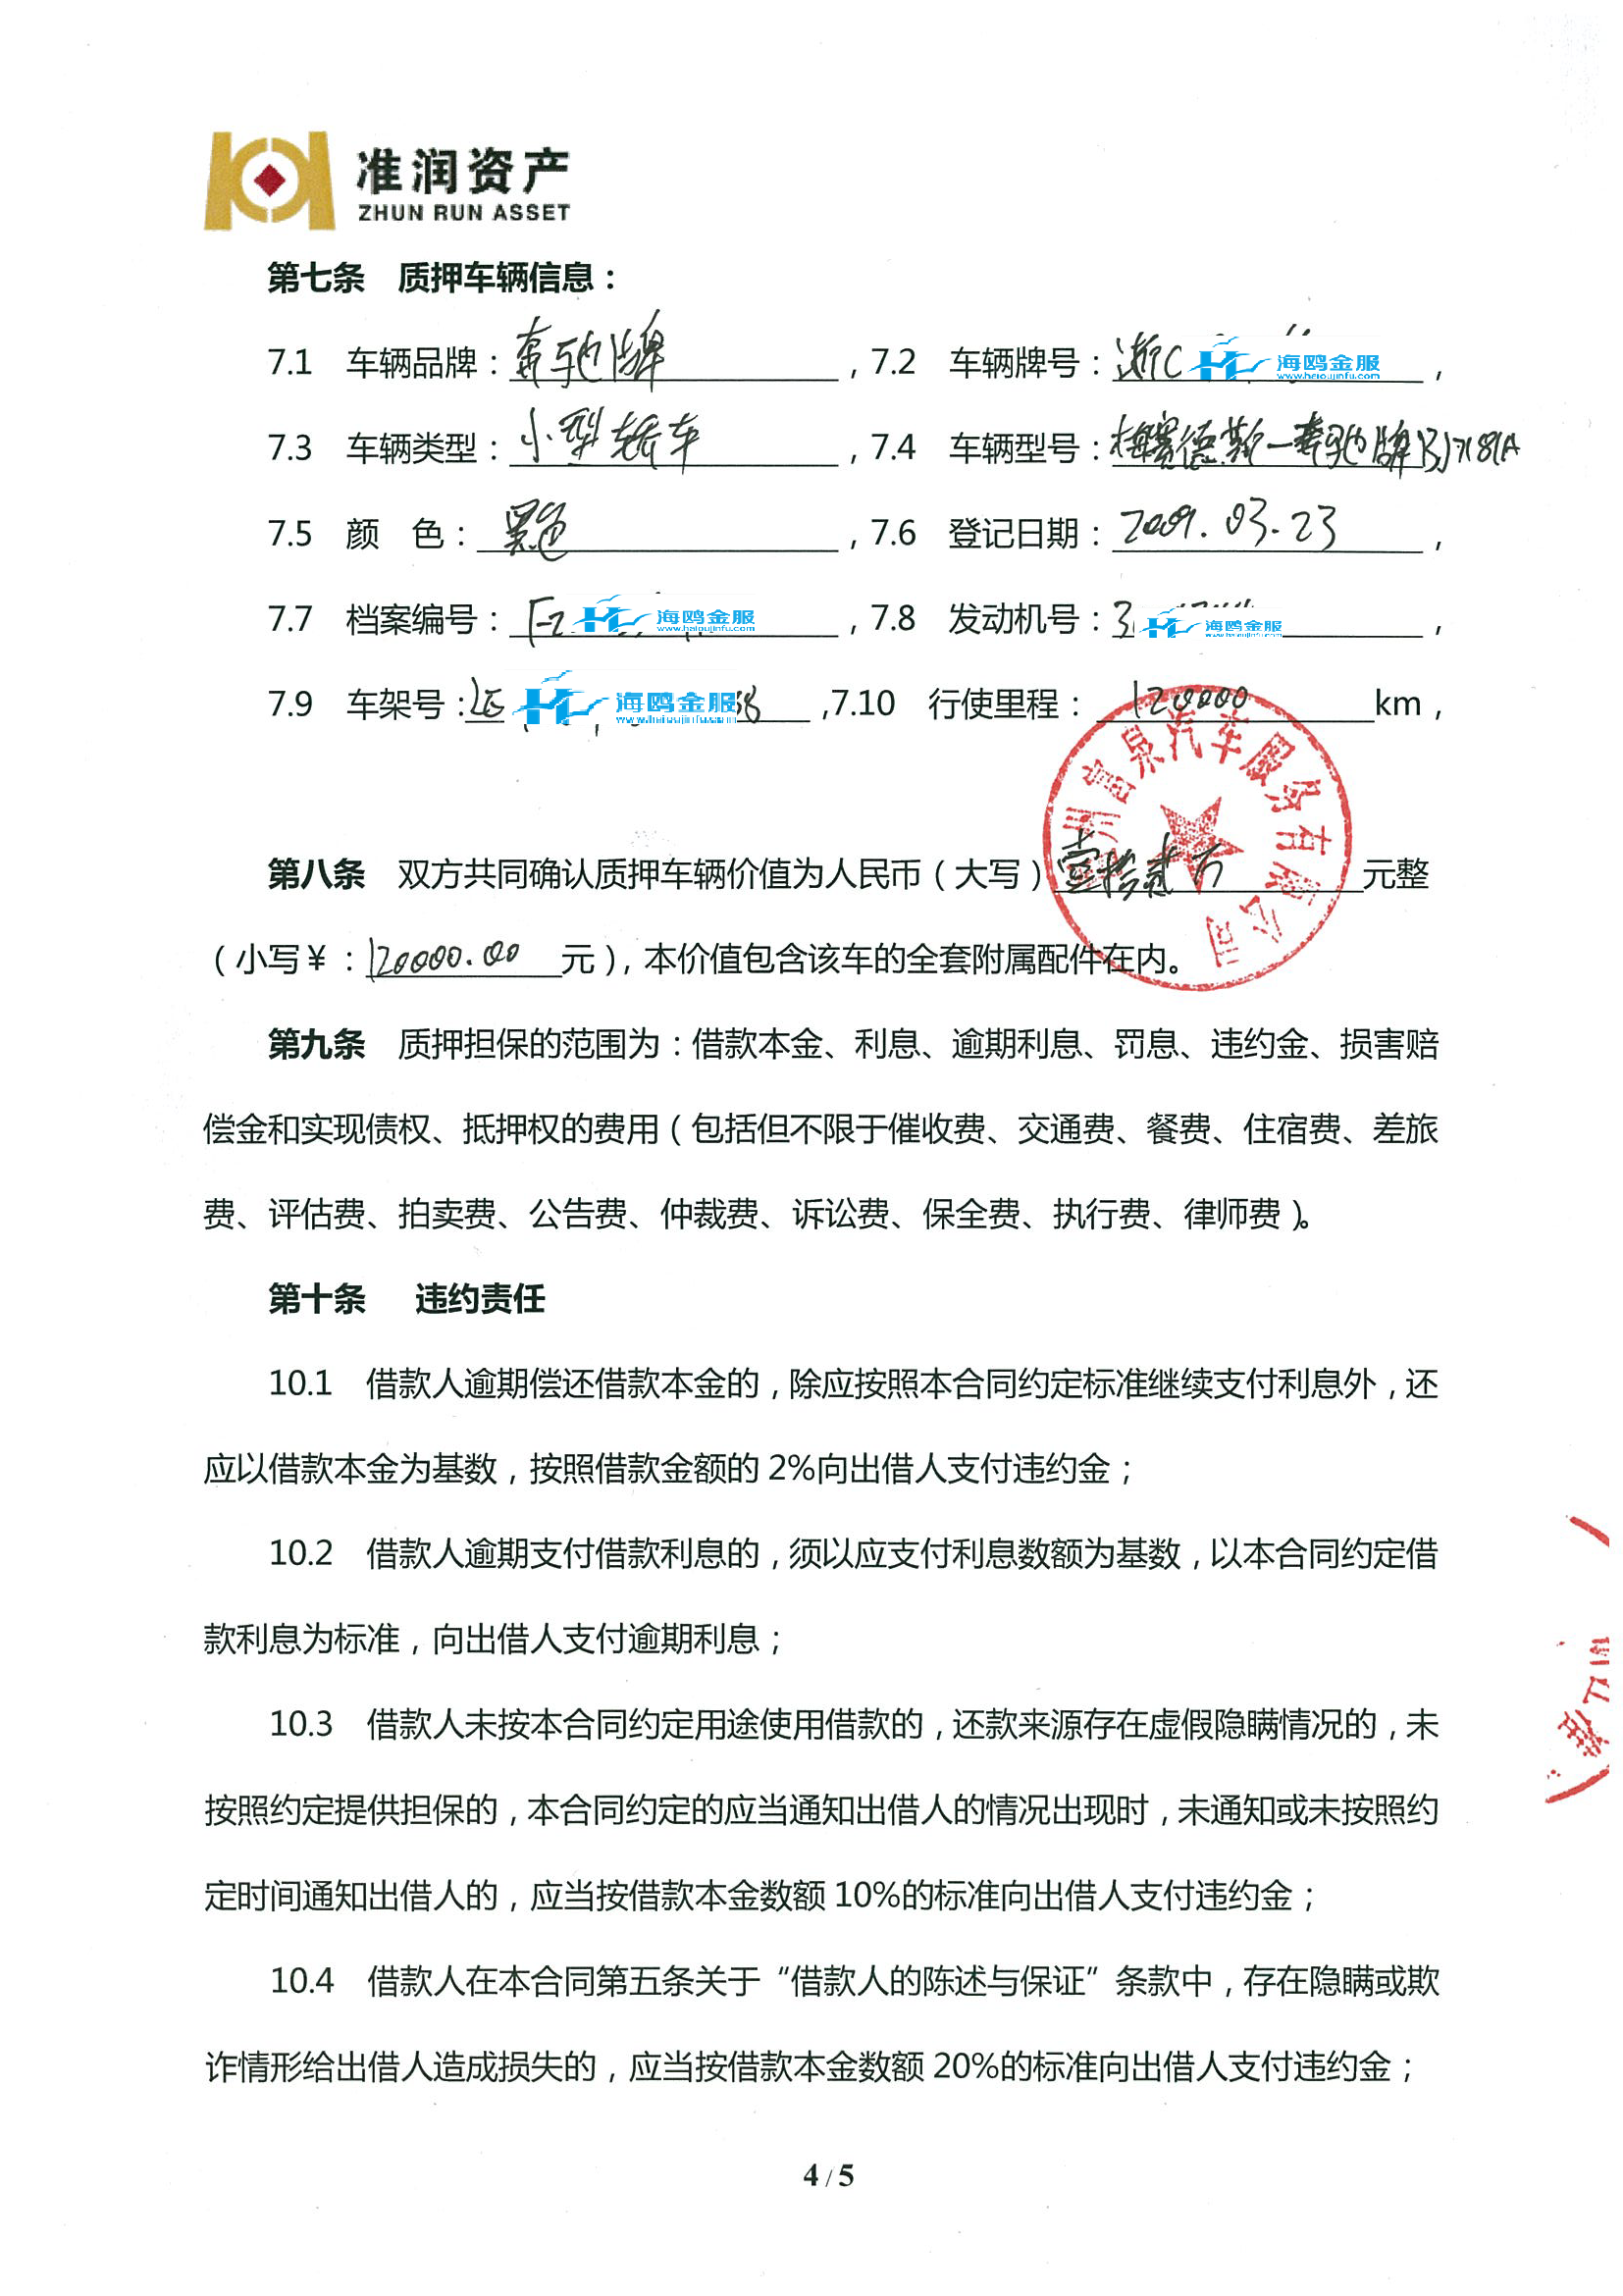 准润资产
ZHUN RUN ASSET
第七条 质押车辆信息：
7.1 车辆品牌：奔驰牌，7.2 车辆牌号：浙C 海鸥金服 www.haioujinfu.com，
7.3 车辆类型：小型轿车，7.4 车辆型号：梅赛德斯—奔驰牌
7.5 颜 色：黑色，7.6 登记日期：2009.03.23，
7.7 档案编号：海鸥金服 www.haioujinfu.com，7.8 发动机号：3 海鸥金服 www.haioujinfu.com，
7.9 车架号：LE 海鸥金服 www.haioujinfu.com 8，7.10 行使里程：120000 km，
州富泉汽车服务有限公司
第八条 双方共同确认质押车辆价值为人民币（大写）壹拾贰万元整
（小写￥：120000.00元），本价值包含该车的全套附属配件在内。
第九条 质押担保的范围为：借款本金、利息、逾期利息、罚息、违约金、损害赔
偿金和实现债权、抵押权的费用（包括但不限于催收费、交通费、餐费、住宿费、差旅
费、评估费、拍卖费、公告费、仲裁费、诉讼费、保全费、执行费、律师费）。
第十条 违约责任
10.1 借款人逾期偿还借款本金的，除应按照本合同约定标准继续支付利息外，还
应以借款本金为基数，按照借款金额的 2%向出借人支付违约金；
10.2 借款人逾期支付借款利息的，须以应支付利息数额为基数，以本合同约定借
款利息为标准，向出借人支付逾期利息；
10.3 借款人未按本合同约定用途使用借款的，还款来源存在虚假隐瞒情况的，未
按照约定提供担保的，本合同约定的应当通知出借人的情况出现时，未通知或未按照约
定时间通知出借人的，应当按借款本金数额 10%的标准向出借人支付违约金；
10.4 借款人在本合同第五条关于“借款人的陈述与保证”条款中，存在隐瞒或欺
诈情形给出借人造成损失的，应当按借款本金数额 20%的标准向出借人支付违约金；
4 / 5